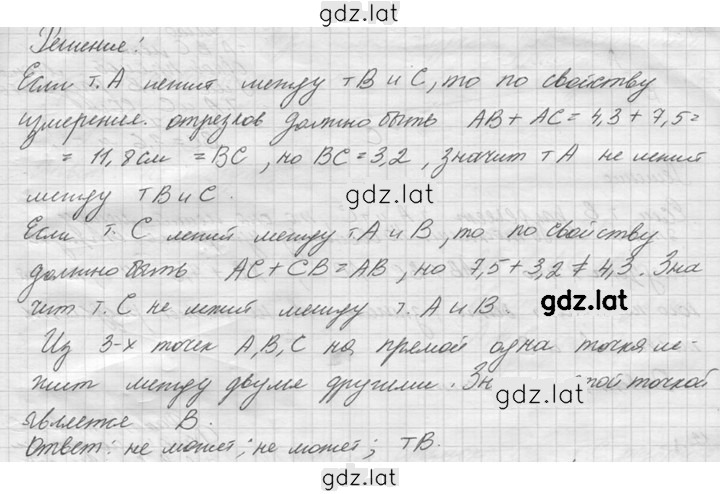 gdz.lat
Решение:
Если т. А лежит между т В и С, то по свойству
измерения. отрезков должно быть AB + AC = 4,3 + 7,5 =
= 11,8 см = BC, но BC = 3,2, значит т А не лежит
между т В и С.
gdz.lat
Если т. С лежит между т. А и В, то по свойству
должно быть AC + CB = AB, но 7,5 + 3,2 ≠ 4,3. Зна
чит т. С не лежит между т. А и В.
gdz.lat
Из 3-х точек А, В, С на прямой одна точка ле-
жит между двумя другими. Зн ной точкой
gdz.lat
является В.
Ответ: не может; не может; т В.
gdz.lat